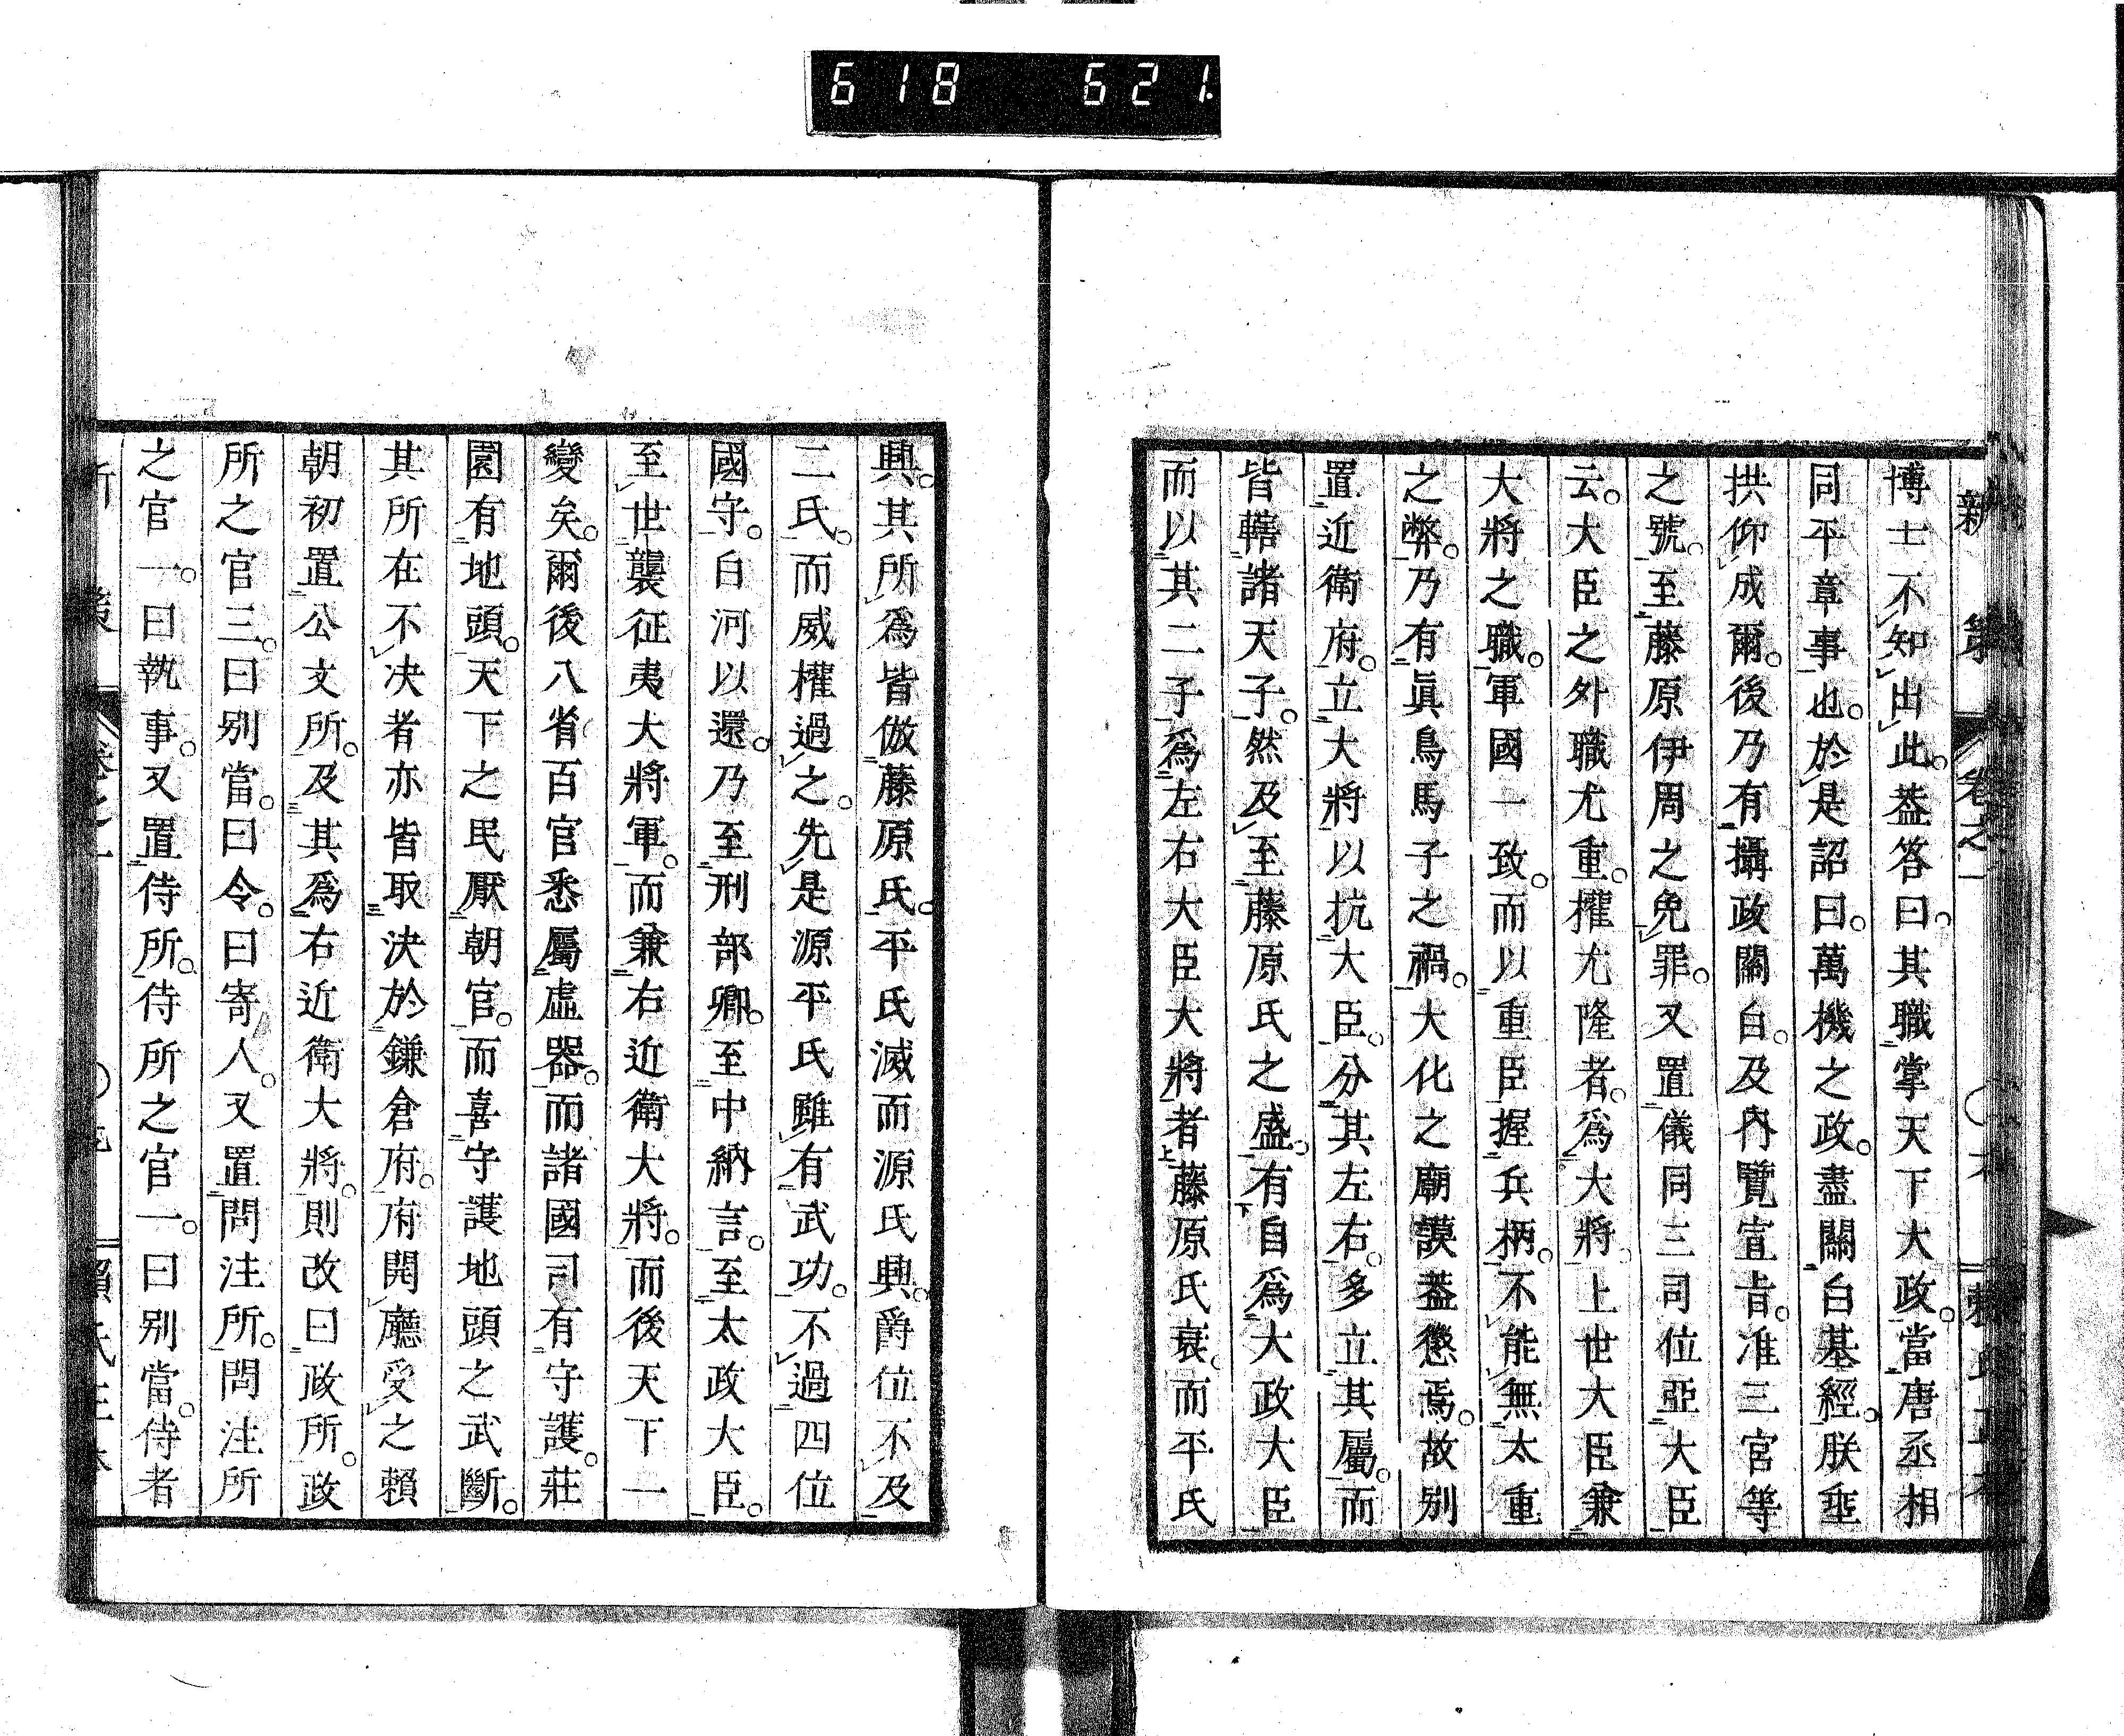 618 621.
新策 卷之一
博士不知出此。蓋答曰。其職掌天下大政。當唐丞相
同平章事也。於是詔曰。萬機之政。盡關白基經。朕垂
拱仰成爾。後乃有攝政關白。及內覽宣旨。准三宮等
之號。至藤原伊周之免罪。又置儀同三司位亞大臣
云。大臣之外職尤重。權尤隆者。爲大將。上世大臣兼
大將之職。軍國一致。而以重臣握兵柄。不能無太重
之弊。乃有眞鳥馬子之禍。大化之廟謨蓋懲焉。故別
置近衛府。立大將以抗大臣。分其左右。多立其屬。而
皆轄諸天子。然及至藤原氏之盛。有自爲大政大臣
而以其二子爲左右大臣大將者。藤原氏衰。而平氏
興。其所爲皆倣藤原氏。平氏滅而源氏興。爵位不及
二氏。而威權過之。先是源平氏雖有武功。不過四位
國守。白河以還。乃至刑部卿。至中納言。至太政大臣。
至世襲征夷大將軍。而兼右近衛大將。而後天下一
變矣。爾後八省百官悉屬虛器。而諸國司有守護。莊
園有地頭。天下之民厭朝官。而喜守護地頭之武斷。
其所在不決者亦皆取決於鎌倉府。府開廳受之賴
朝初置公文所。及其爲右近衛大將。則改曰政所。政
所之官三。曰別當。曰令。曰寄人。又置問注所。問注所
之官一。曰執事。又置侍所。侍所之官一。曰別當。侍者